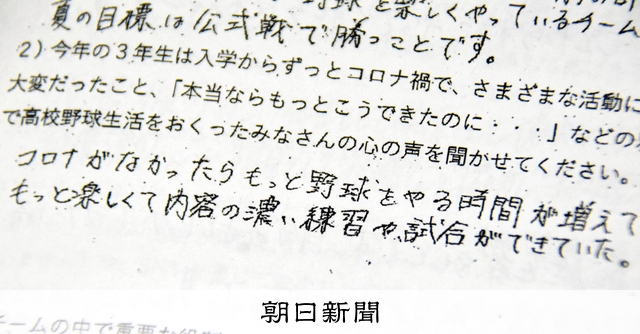 野球を楽しくやっているチーム
夏の目標は公式戦で勝つことです。
2）今年の３年生は入学からずっとコロナ禍で、さまざまな活動に
大変だったこと、「本当ならもっとこうできたのに・・・」などの
で高校野球生活をおくったみなさんの心の声を聞かせてください。
コロナがなかったらもっと野球をやる時間が増えて
もっと楽しくて内容の濃い練習や試合ができていた。
朝日新聞
チームの中で重要な役